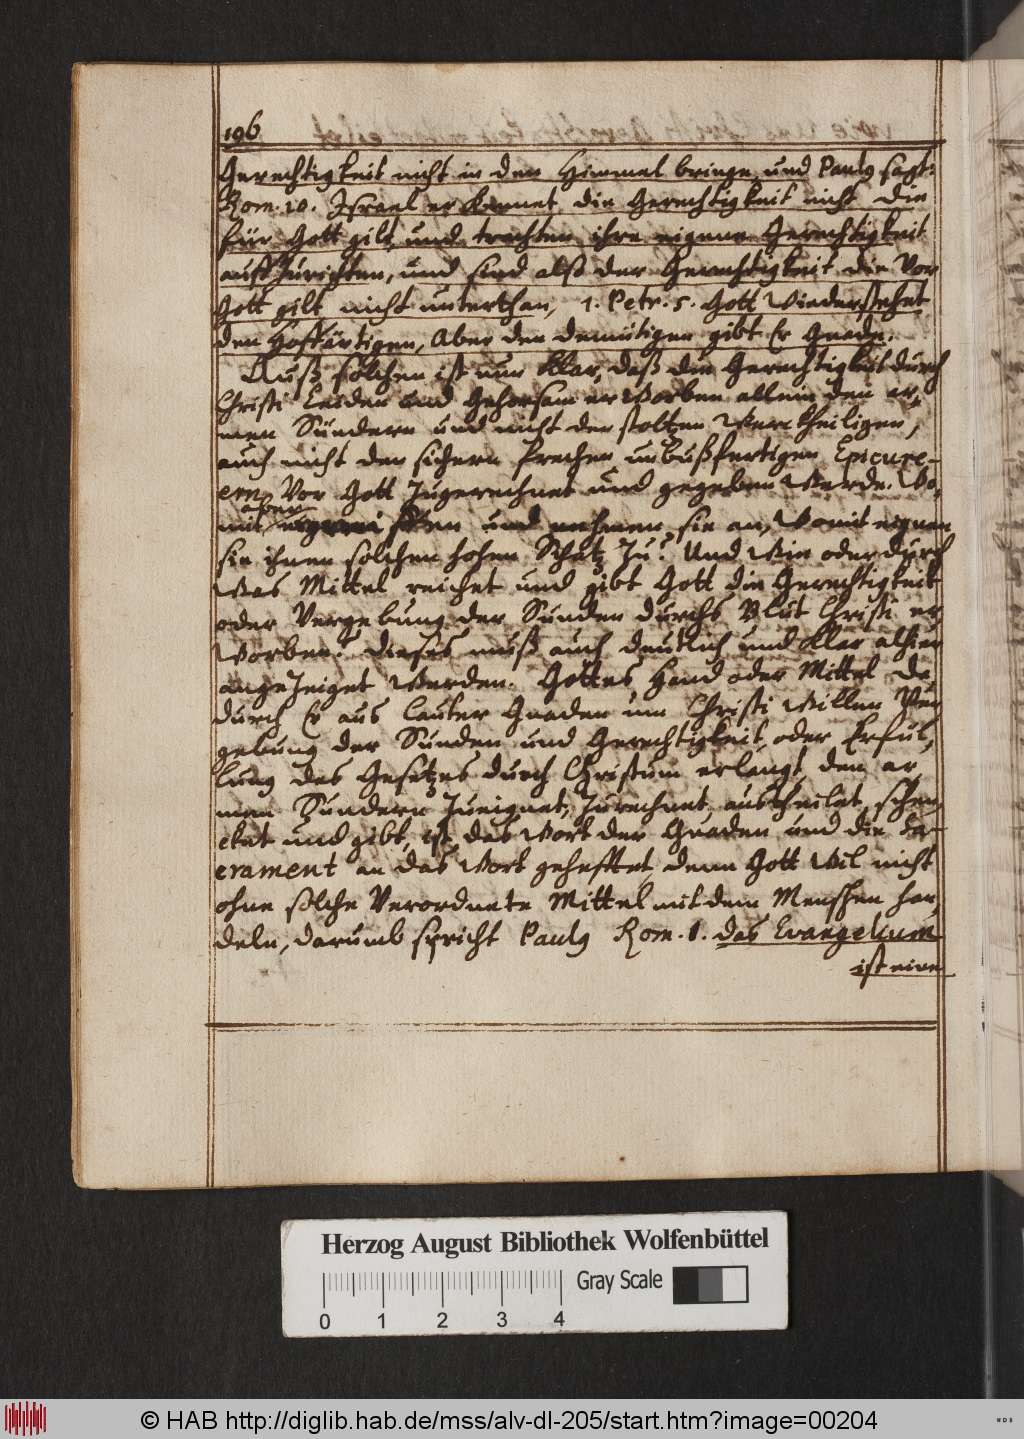 196
Gerechtigkeit nicht in den Himmel bringe, und Paulus sagt:
Rom. 10. Israel erkennet die Gerechtigkeit nicht die
für Gott gilt, und trachten ihre eigene Gerechtigkeit
auffzurichten, und sind alß der Gerechtigkeit die Vor
Gott gilt nicht unterthan, 1. Petr. 5. Gott Wiederstehet
den Hoffärtigen, Aber den demütigen gibt Er Gnade.
Auß solchen ist nun klar, daß die Gerechtigkeit durch
Christi Leiden und Gehorsam erWorben allein den ar,
men Sündern und nicht den stoltzen Werckheiligen,
auch nicht den sichern frechen unbußfertigen Epicure-
ern Vor Gott Zugerechnet und gegeben Werde. Wo,
mit aber und nehmen sie an, Womit eignen
sie ihnen solchen hohen Schatz Zu? Und Wie oder durch
Was Mittel reichet und gibt Gott die Gerechtigkeit
oder Vergebung der Sunden durchs Blut Christi er,
Worben? dieses muß auch deutlich und klar alhier
angeZeiget Werden. Gottes Hand oder Mittel da,
durch Er aus lauter Gnaden um Christi Willen Ver,
gebung der Sunden und Gerechtigkeit, oder Erfül,
lung des Gesetzes durch Christum erlangt, den ar,
men Sundern Zueignet, Zurechnet, austheilet, schen,
cket und gibt, ist das Wort der Gnaden und die Sa-
crament an das Wort gehefftet denn Gott Wil nicht
ohne solche Verordnete Mittel mit dem Menschen han,
deln, darumb spricht Paulus Rom. 1. das Evangelium
ist eine
Herzog August Bibliothek Wolfenbüttel
Gray Scale
0 1 2 3 4
© HAB http://diglib.hab.de/mss/alv-dl-205/start.htm?image=00204